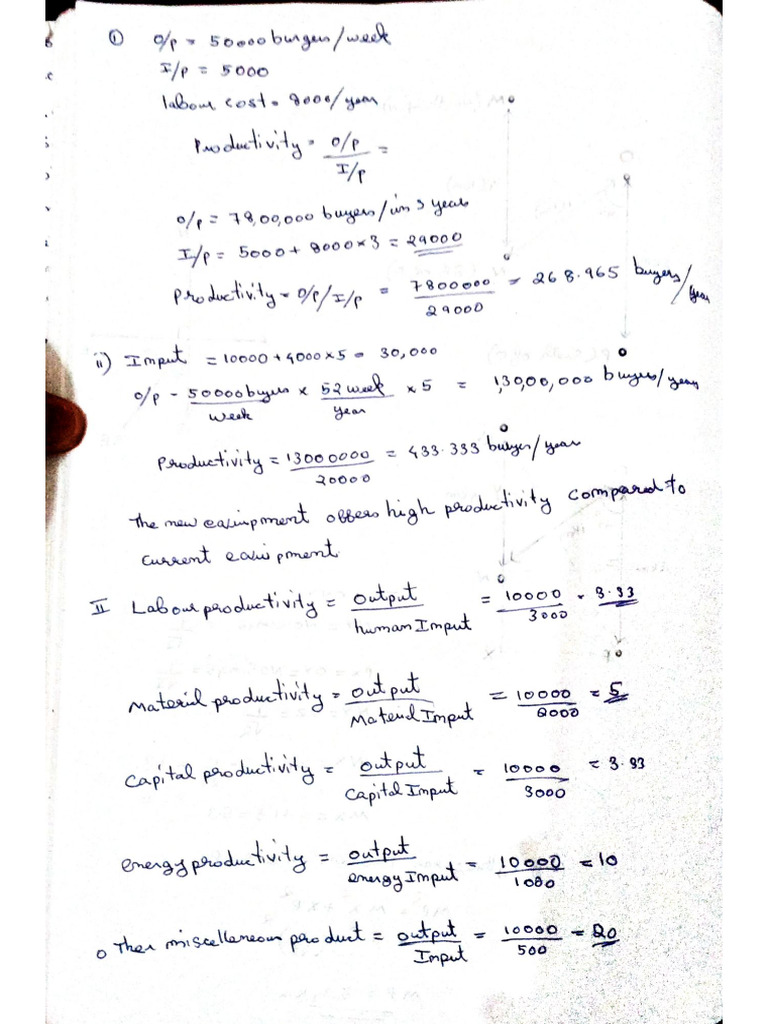 ① O/p = 50000 burgers/week
I/p = 5000
labour cost = 8000/year
Productivity = O/p / I/p =
O/p = 78,00,000 buyers/in 3 year
I/p = 5000 + 8000 × 3 = 29000
Productivity = O/p / I/p = 7800000 / 29000 = 268.965 buyers/year
ii) Imput = 10000 + 4000 × 5 = 30,000
O/p - 50000 buyers / week × 52 week / year × 5 = 1,30,00,000 buyers/year
Productivity = 13000000 / 30000 = 433.333 buyer/year
The new equipment offers high productivity compared to
current equipment.
II Labour productivity = output / human Input = 10000 / 3000 = 3.33
Material productivity = output / Material Input = 10000 / 2000 = 5
Capital productivity = output / Capital Input = 10000 / 3000 = 3.33
energy productivity = output / energy Input = 10000 / 1000 = 10
Other miscellaneous product = output / Input = 10000 / 500 = 20